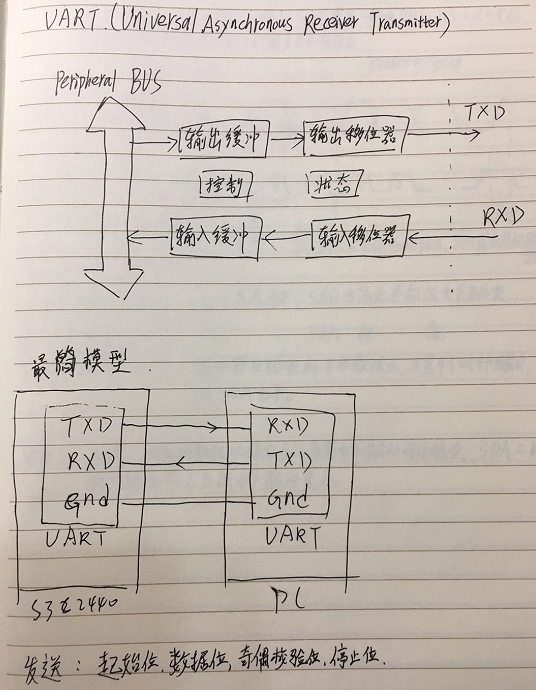 UART.(Universal Asynchronous Receiver Transmitter)
Peripheral BUS
输出缓冲 输出移位器 TXD
控制 状态
输入缓冲 输入移位器 RXD
最简模型.
TXD RXD
RXD TXD
Gnd Gnd
UART UART
S3C2440 PC
发送：起始位,数据位,奇偶校验位,停止位.